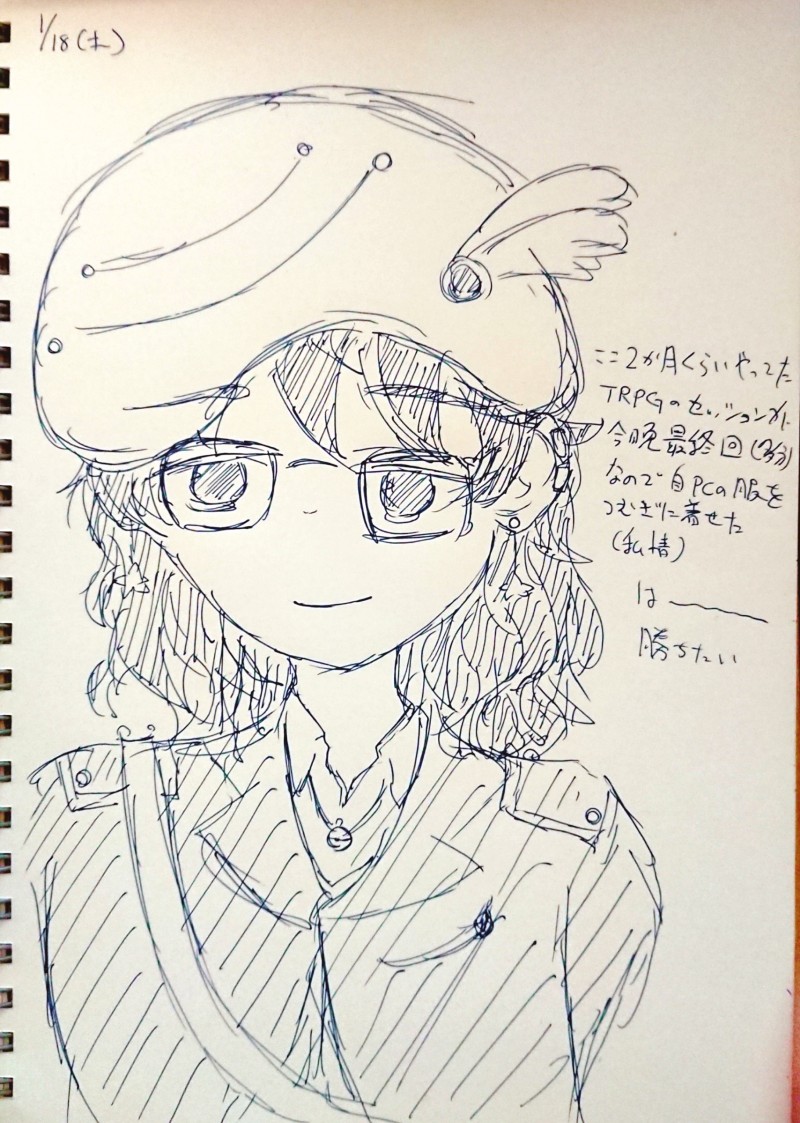 1/18(土)
ここ2か月くらいやってた
TRPGのセッションが
今晩最終回(多分)
なので自PCの服を
つむぎに着せた
(私情)
は——
勝ちたい